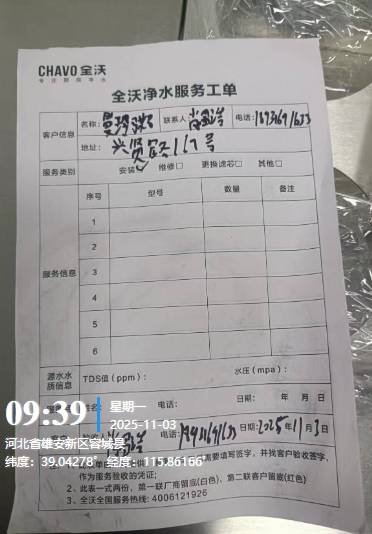 CHAVO 全沃
专注厨房净水
全沃净水服务工单
客户信息
名称：
联系人
电话：
地址：兴贤路167号
服务类别
安装 维修□ 更换滤芯□ 其他□
服务信息
序号 型号 数量 备注
1
2
3
4
5
6
源水水质信息
TDS值（ppm）： 水压（mpa）：
电话： 日期： 年 月 日
电话： 日期：2025年11月3日
需要填写签字，并找客户验收签字，
作为服务验收的凭证；
2、此表一式两份，第一联厂商留底(白色)、第二联客户留底(红色)
3、全沃全国服务热线: 4006121926
09:39
星期一
2025-11-03
河北省雄安新区容城县
纬度：39.04278° 经度：115.86166°